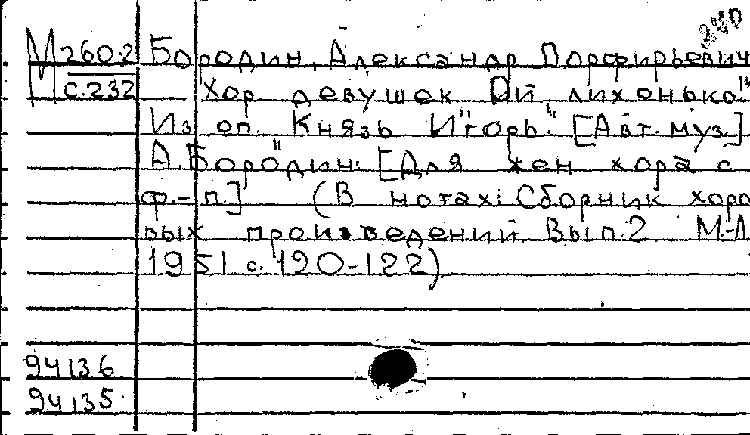 240
М260.2 Бородин, Александр Порфирьевич
С.232 "Хор девушек Ой лихонько"
Из оп. "Князь Игорь". [Авт. муз.]
А. Бородин. [Для жен хора с
ф.-п.] (В нотах: Сборник хоро
вых произведений. Вып. 2 М.-Л
1951 с. 120-122)
94136
94135